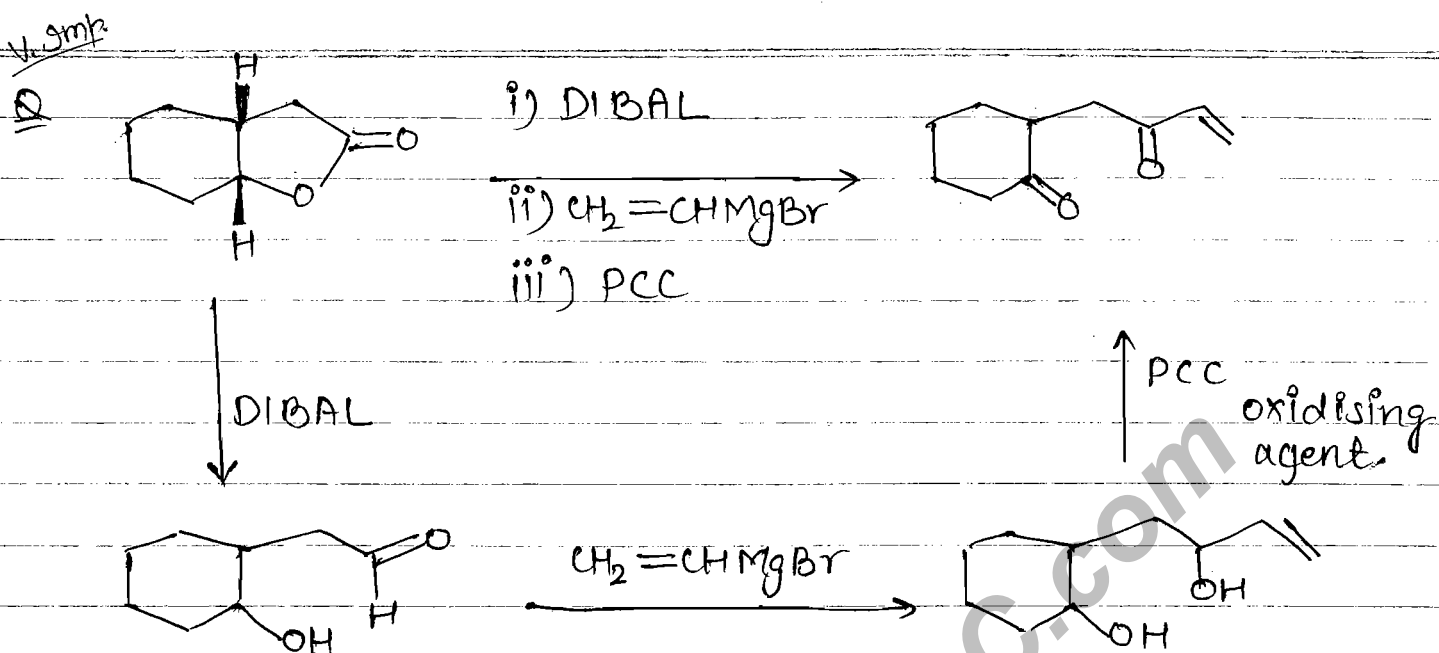 V. Imp.
Q
H
O
O
H
i) DIBAL
ii) CH2=CHMgBr
iii) PCC
O
O
DIBAL
PCC
oxidising
agent.
O
H
OH
CH2=CHMgBr
OH
OH
C.com